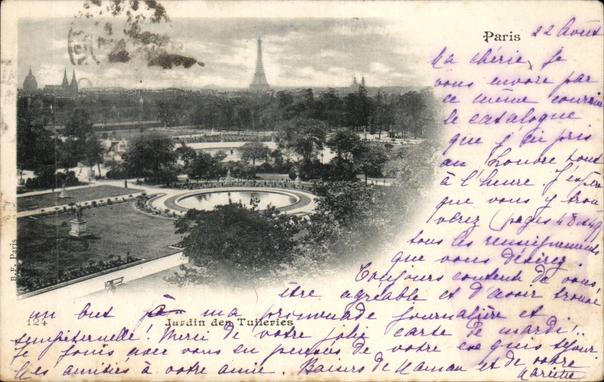 Paris 22 Août
Ma chérie, Je
vous envoie par
ce même courrier
le catalogue
que j'ai pris
au Louvre tout
à l'heure J'espère
que vous y trou
verez (pages 48 et 49)
tous les renseignements
que vous désirez.
Toujours contente de vous
être agréable et d'avoir trouvé
un but à ma promenade journalière et
sempiternelle! Merci de votre jolie carte de mardi!..
Je jouis avec vous en pensées de votre exquis séjour.
Mes amitiés à votre amie. Baisers de Maman et de votre
Mariette
B.F. Paris
124 Jardin des Tuileries